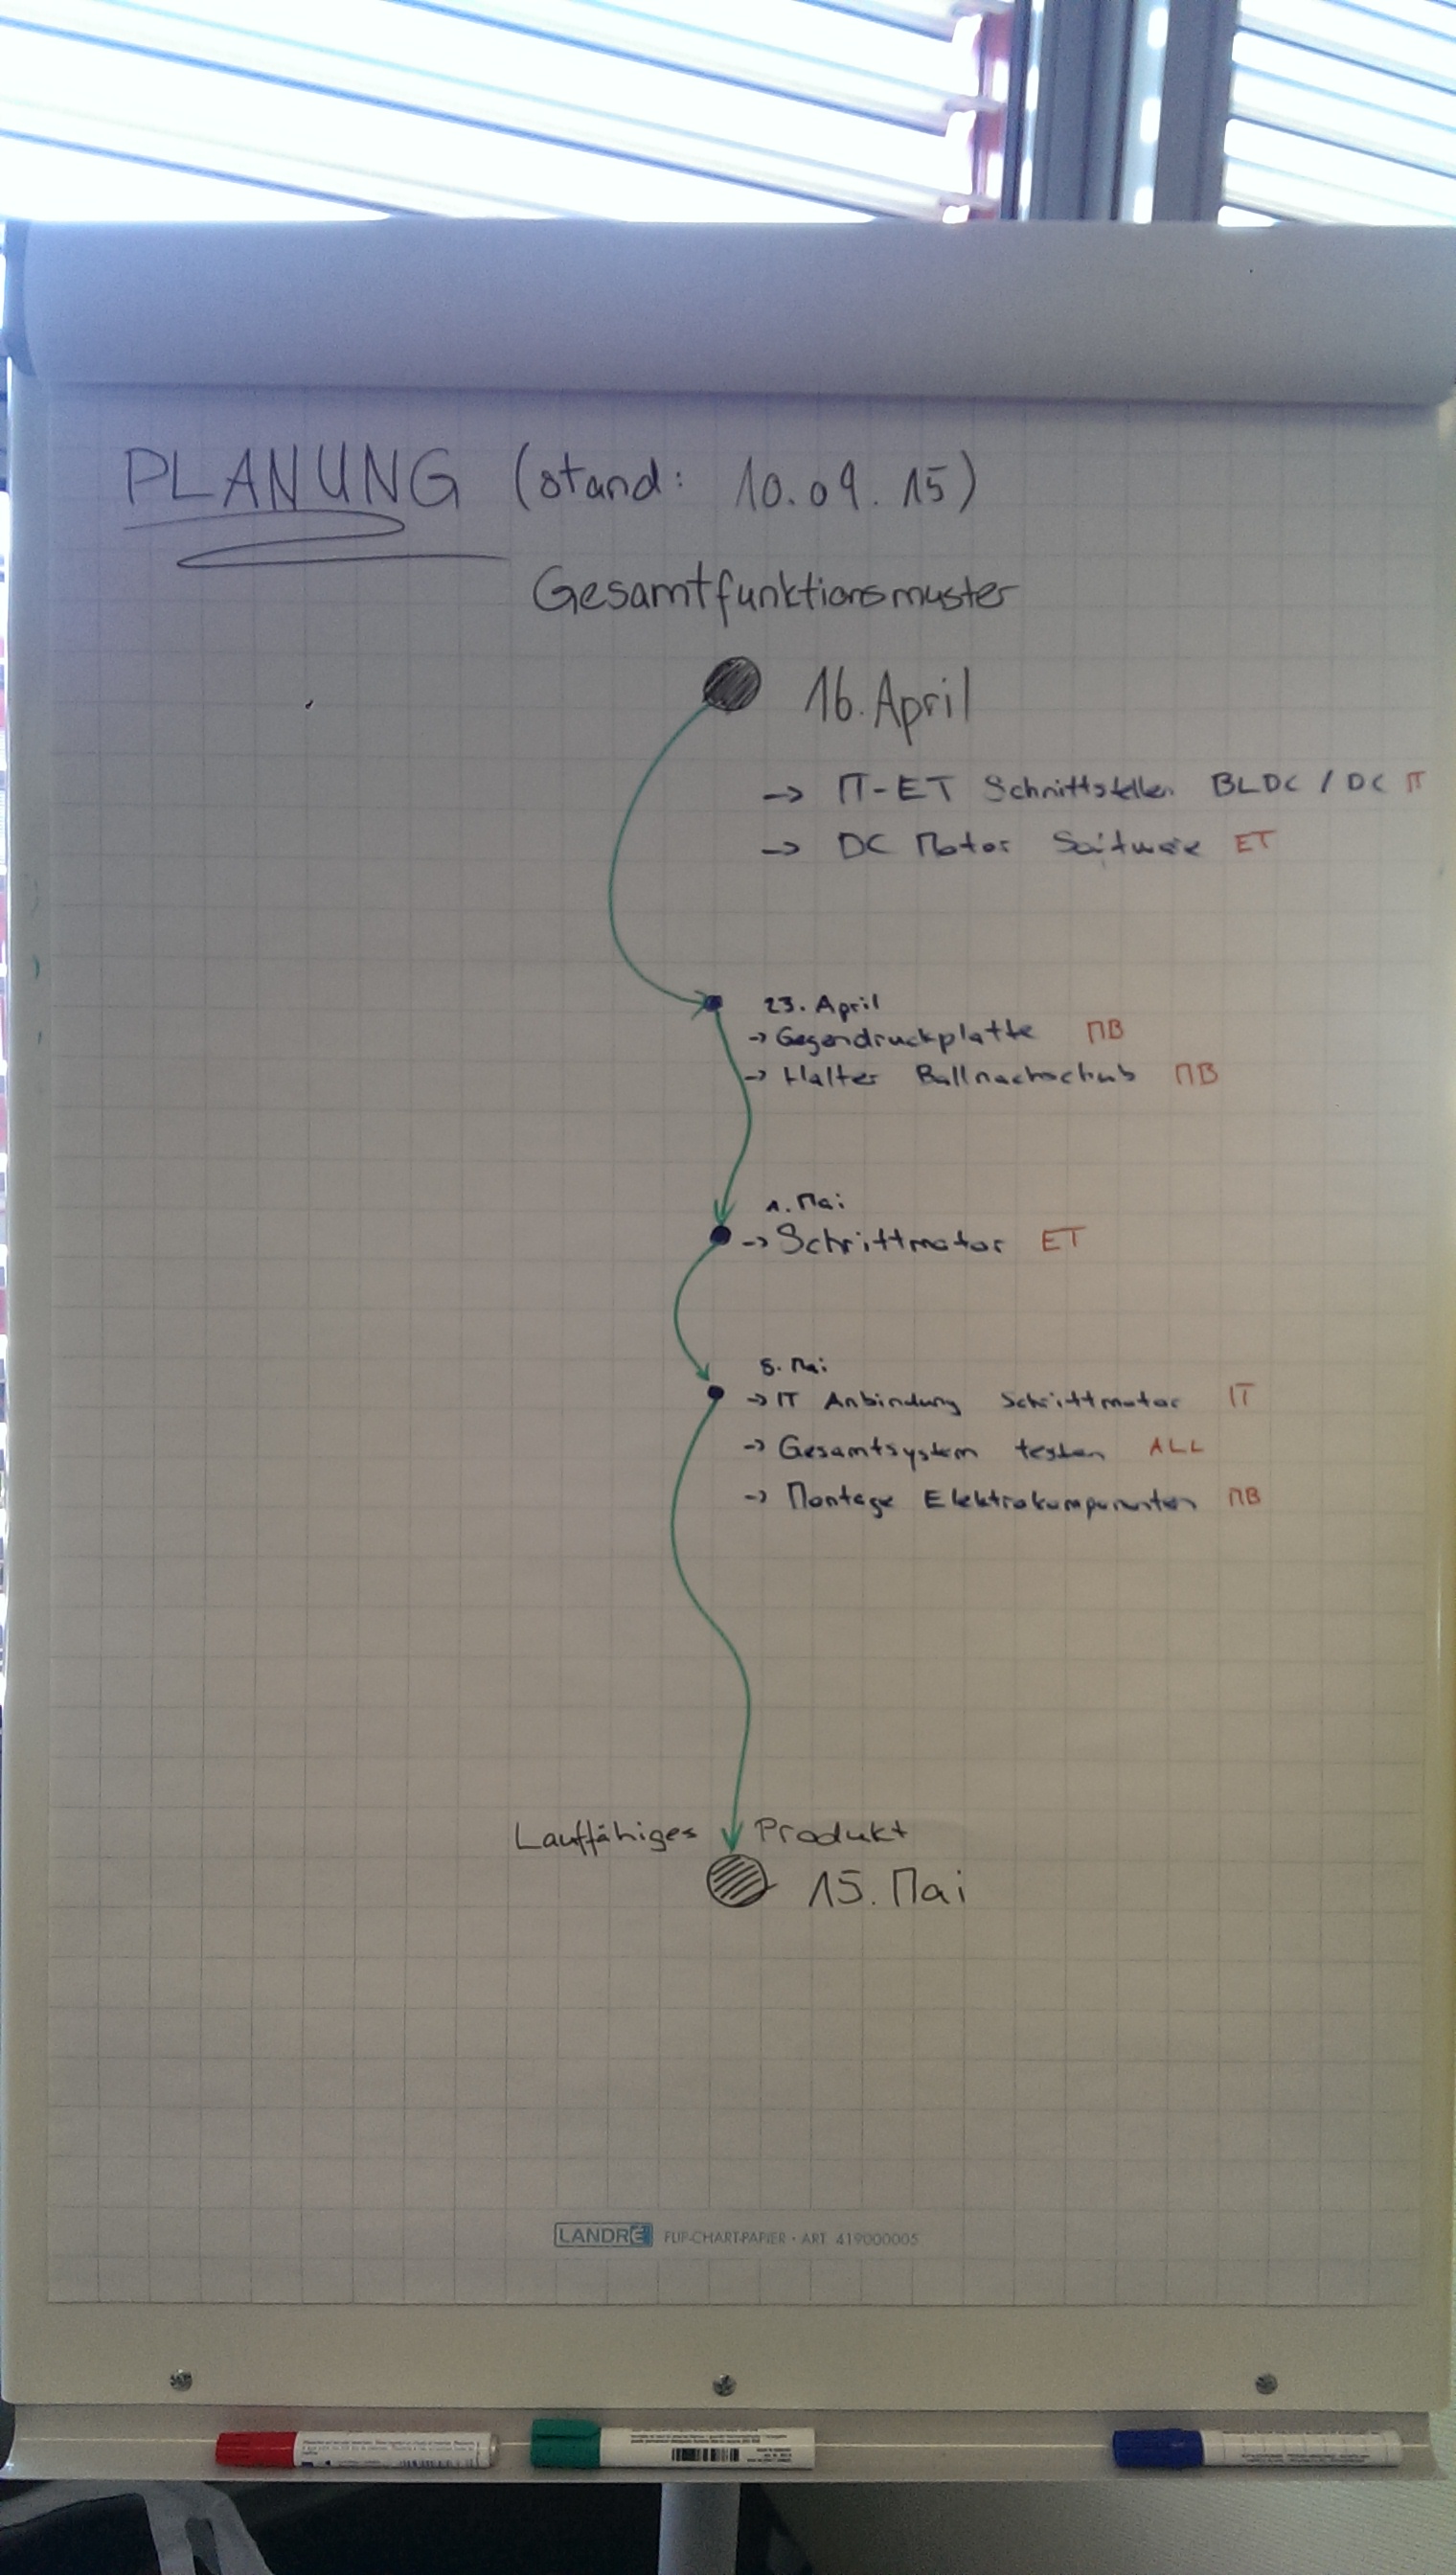 PLANUNG (stand: 10.04.15)
Gesamtfunktionsmuster
16. April
-> IT-ET Schnittstellen BLDC / DC IT
-> DC Motor Software ET
23. April
-> Gegendruckplatte MB
-> Halter Ballnachschub MB
1. Mai
-> Schrittmotor ET
8. Mai
-> IT Anbindung Schrittmotor IT
-> Gesamtsystem testen ALL
-> Montage Elektrokomponenten MB
Lauffähiges Produkt
15. Mai
LANDRÉ FLIP-CHART-PAPIER · ART. 419000005